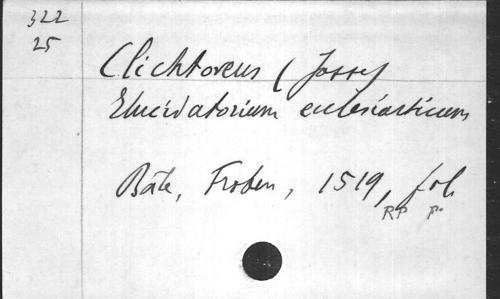 322
25
Clichtoveus (Josse)
Elucidatorium ecclesiasticum
Bâle, Froben, 1519, fol.
RP